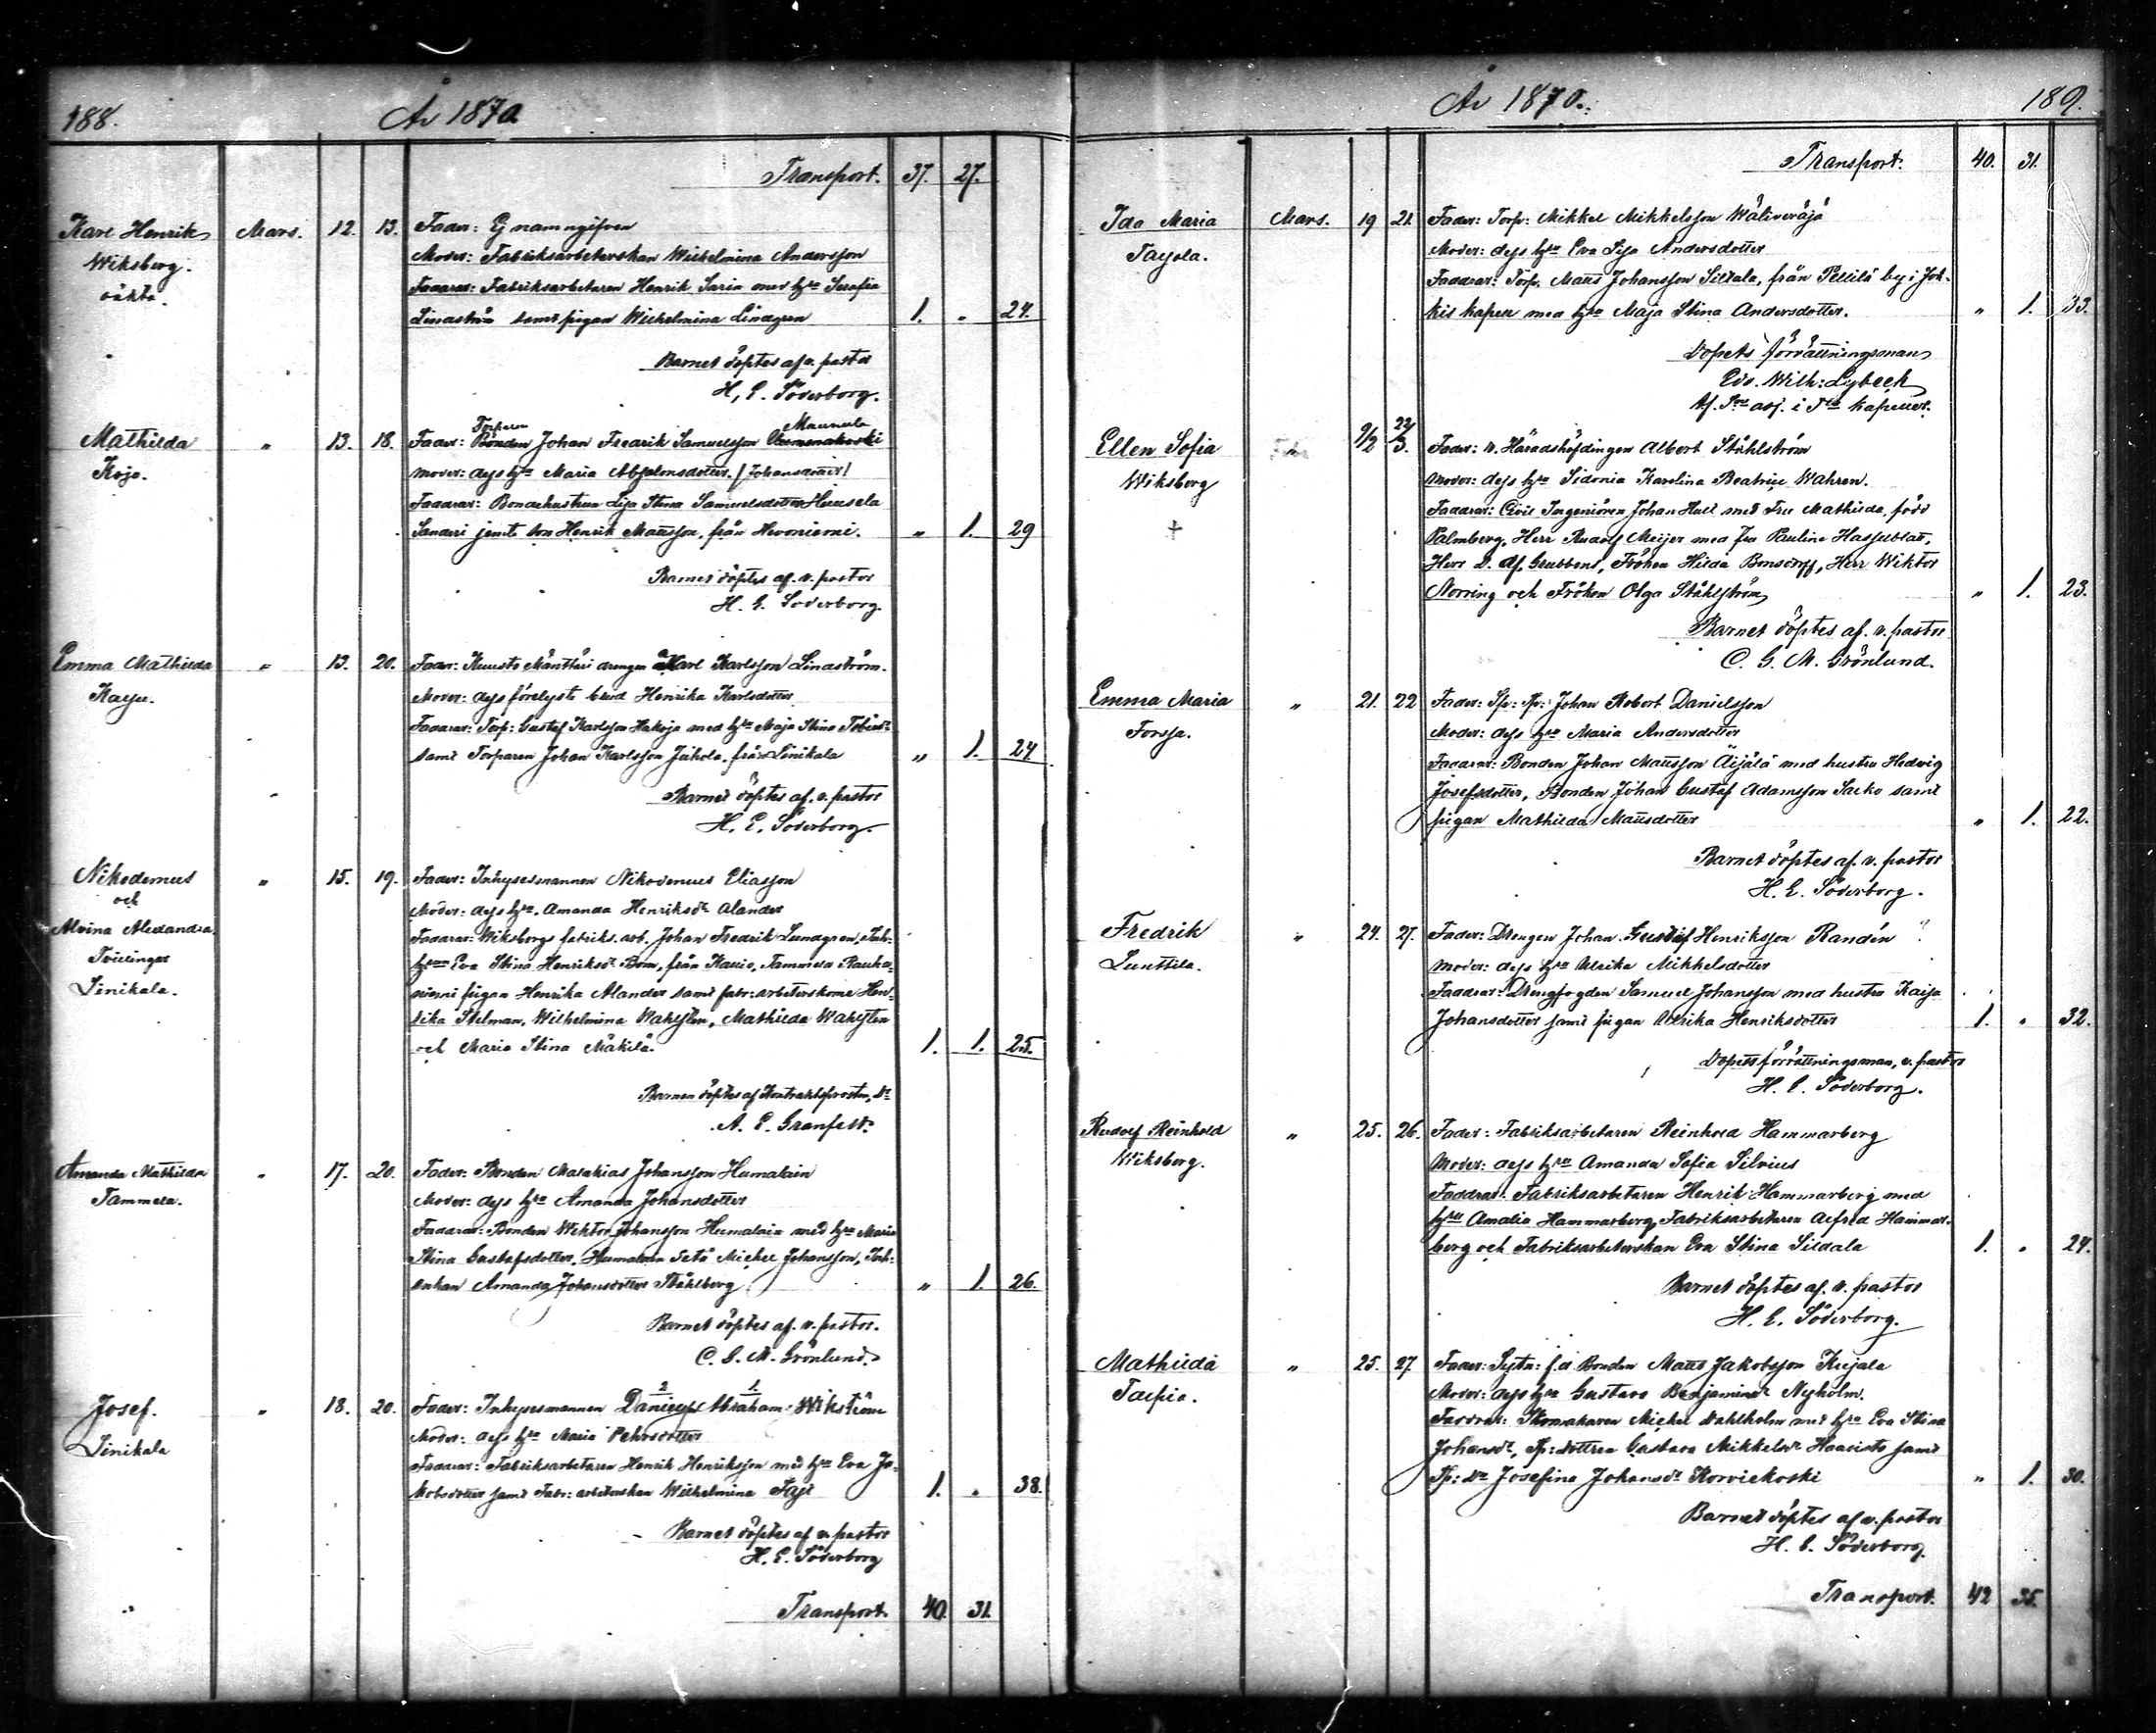 188.
År 1870
Transport. 37. 27.
Karl Henrik Mars. 12. 13. Fader: Ej namngifven
Wiksberg. Moder: Fabriksarbeterskan Wilhelmina Andersson
oäkta. Faddrar: Fabriksarbetaren Henrik Sarin med hru Serafia
Lindström samt pigan Wilhelmina Lindgren 1. " 24.
Barnet döptes af v. pastor
H. E. Söderborg.
Torparen Maunula
Mathilda " 13. 18. Fader: Bonden Johan Fredrik Samuelsson
Kojo. Moder: dess hru Maria Absalonsdotter. (Johansdotter)
Faddrar: Bondehustrun Lisa Stina Samuelsdotter
Sanderi jemte son Henrik Mattsson, från Hevoniemi. " 1. 29
Barnet döptes af. v. pastor
H. E. Söderborg.
Emma Mathilda " 13. 20. Fader: Kuusto Mänttäri drengen Karl Karlsson Lindström.
Moder: dess förelyste brud Henrika Karlsdotter
Faddrar: Torp: Gustaf Karlsson Hakoja med hru Maja Stina
samt Torparen Johan Karlsson Jakola, från Linikala " 1. 24
Barnet döptes af. v. pastor
H. E. Söderborg.
Nikodemus " 15. 19. Fader: Inhysesmannen Nikodemus Eliasson
och Moder: dess hru. Amanda Henriksdr Alander
Alvina Alexandra Faddrar: Wiksbergs fabriks. arb. Johan Fredrik Lundgren,
Tvillingar Eva Stina Henriksdr Bom, från Tammela
Linikala. pigan Henrika Alander samt fabr: arbeterskorna Hen-
rika Stelman, Wilhelmina Wahlsten, Mathilda Wahlsten
och Maria Stina Mäkilä. 1. 1. 25.
Barnen döptes af Kontraktsprosten, Dr
A. E. Granfelt.
Amanda Mathilda " 17. 20. Fader: Bonden Malakias Johansson Humalain
Tammela. Moder: dess hru Amanda Johansdotter
Faddrar: Bonden Wiktor Johansson Humalain med hru Maria
Stina Gustafsdotter, Michel Johansson,
enkan Amanda Johansdotter Ståhlberg " 1. 26.
Barnet döptes af. v. pastor.
C. G. M. Grönlund.
2 1
Josef. " 18. 20. Fader: Inhysesmannen Abraham Wikström
Linikala Moder: dess hru Maria Pehrsdotter
Faddrar: Fabriksarbetaren Henrik Henriksson med hru Eva Ja-
kobsdotter samt Fabr: arbeterskan Wilhelmina 1. " 38.
Barnet döptes af v. pastor
H. E. Söderborg
Transport 40. 31.
År 1870. 189.
Transport. 40. 31.
Ida Maria Mars. 19 21. Fader: Torp: Mikkel Mikkelsson
Moder: dess hru Eva Lisa Andersdotter
Faddrar: Torp. Matts Johansson Siltala, från Pellilä by i Jok-
kis kapell med hru Maja Stina Andersdotter. " 1. 33.
Dopets förrättningsman
Edv. Wilh: Lybeck
Ellen Sofia " 9/2 22/3. Fader: v. Häradshöfdingen Albert Ståhlström
Wiksberg Moder: dess hru Sidonia Karolina Beatrice Wahren.
Faddrar: Civil Ingeniören Johan med Fru Mathilda, född
+ Palmberg, Herr Rudolf Meijer med fru Pauline Hasselblatt,
Herr D. af. Grubbens, Fröken Hilda Bonsdorff, Herr Wiktor
Norring och Fröken Olga Ståhlström " 1. 23.
Barnet döptes af. v. pastor
C. G. M. Grönlund.
Emma Maria " 21. 22 Fader: Johan Robert Danielsson
Forssa. Moder: dess hru Maria Andersdotter
Faddrar: Bonden Johan Mattsson Äijälä med hustru Hedvig
Josefsdotter, Bonden Johan Gustaf Adamsson samt
pigan Mathilda Mattsdotter " 1. 22.
Barnet döptes af. v. pastor
H. E. Söderborg.
Fredrik " 24. 27. Fader: Drengen Johan Gustaf Henriksson Randén
Lunttila. Moder: dess hru Ulrika Mikkelsdotter
Faddrar: Drengfogden Samuel Johansson med hustru Kaisa
Johansdotter samt pigan Ulrika Henriksdotter 1. " 32.
Dopets förrättningsman, v. pastor
H. E. Söderborg.
Rudolf Reinhold " 25. 26. Fader: Fabriksarbetaren Reinhold Hammarberg
Wiksberg. Moder: dess hru Amanda Sofia Silvius
Faddrar: Fabriksarbetaren Henrik Hammarberg med
hru Amalia Hammarberg, Fabriksarbetaren Alfred Hammar-
berg och Fabriksarbeterskan Eva Stina Sildala 1. " 24.
Barnet döptes af. v. pastor
H. E. Söderborg.
Mathilda " 25. 27. Fader: f.d. Bonden Matts Jakobsson Kujala
Moder: dess hru Gustava Benjaminsdr Nyholm.
Faddrar: Skomakaren Michel Dahlholm med hru Eva Stina
Johansdr, Gustava Mikkelsdr Haavisto samt
Josefina Johansdr Korviekoski " 1. 30.
Barnet döptes af v. pastor
H. E. Söderborg.
Transport. 42 35.